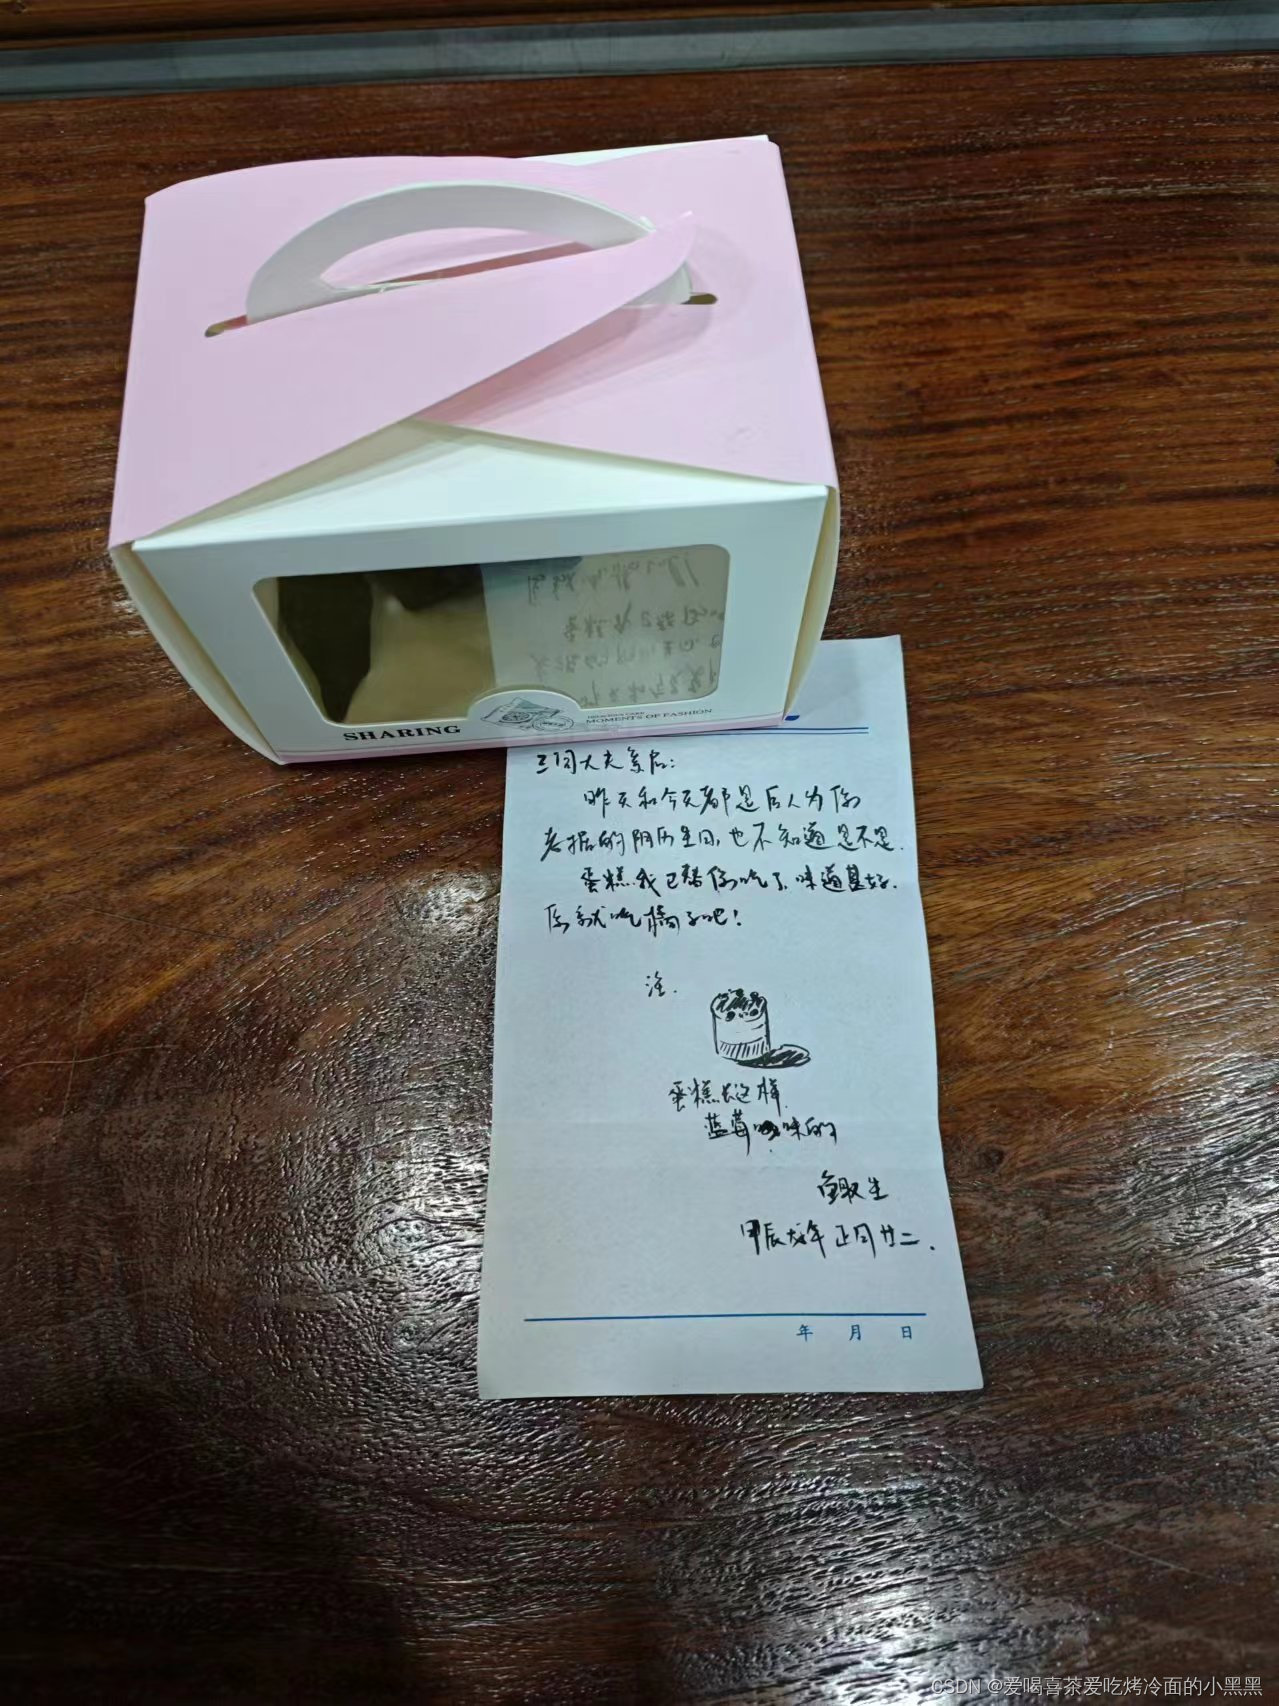 SHARING
DELICIOUS CAKE
MOMENTS OF FASHION
三闾大夫亲启:
昨天和今天都是后人为你
考据的阴历生日,也不知道是不是.
蛋糕我已帮你吃了,味道甚好.
你就吃橘子吧!
注.
蛋糕长这样.
蓝莓味的
鲰生
甲辰龙年正月廿二.
年 月 日
CSDN @爱喝喜茶爱吃烤冷面的小黑黑